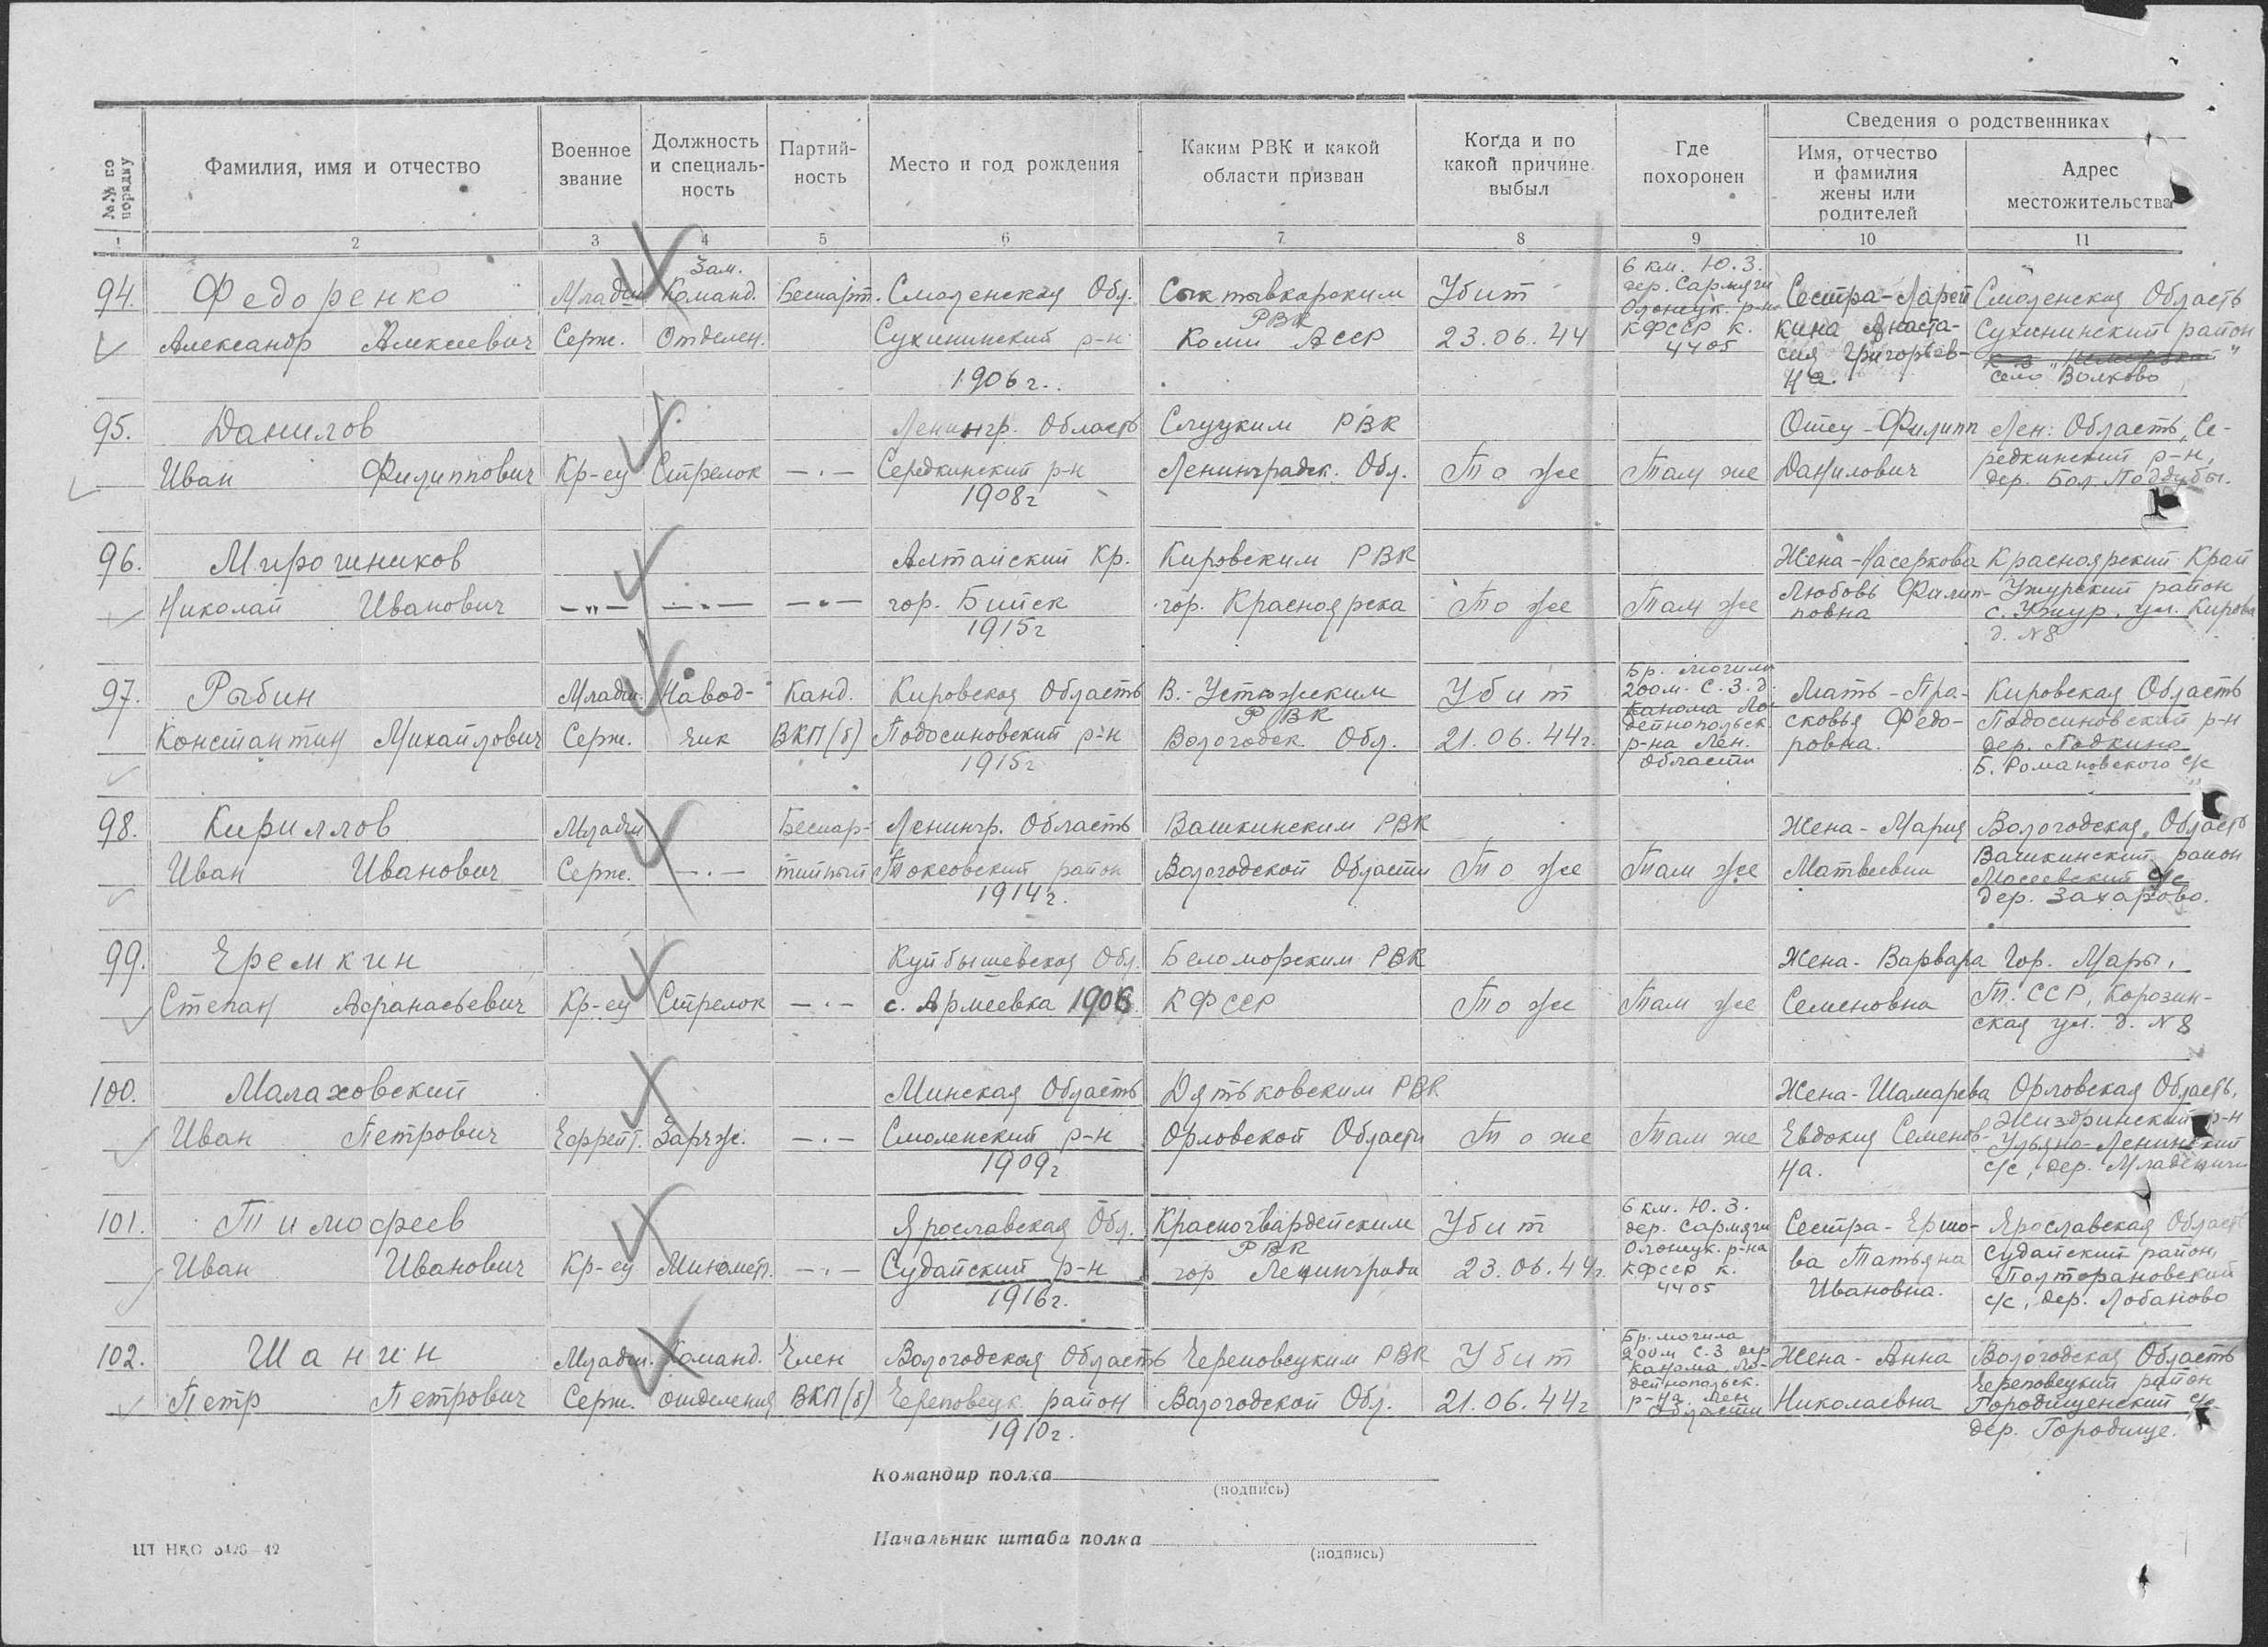 №№ по порядку
Фамилия, имя и отчество
Военное звание
Должность и специаль-ность
Партий-ность
Место и год рождения
Каким РВК и какой области призван
Когда и по какой причине выбыл
Где похоронен
Сведения о родственниках
Имя, отчество и фамилия жены или родителей
Адрес местожительства
1 2 3 4 5 6 7 8 9 10 11
94.
Федоренко
Александр Алексеевич
Младш.
Серж.
Зам.
Команд.
Отделен.
Беспарт.
Смоленская Обл.
Сухининский р-н
1906 г.
Сыктывкарским
РВК
Коми АССР
Убит
23.06.44
6 км. Ю.З.
дер. Сармяги
Олонецк. р-на
КФССР к.
4405
Сестра - Ларей
кина Анаста-
сия Григорьев-
на.
Смоленская Область
Сухининский район
село Волково
95.
Данилов
Иван Филиппович
Кр-ец
Стрелок
— . —
Ленингр. Область
Середкинский р-н
1908 г
Слуцким РВК
Ленинградск. Обл.
То же
Там же
Отец - Филипп
Данилович
Лен. Область, Се-
редкинский р-н,
дер. Бол. Поддубы.
96.
Мирошников
Николай Иванович
— " —
— . —
— . —
Алтайский Кр.
гор. Бийск
1915 г
Кировским РВК
гор. Красноярска
То же
Там же
Жена - Насеркова
Любовь Филип-
повна
Красноярский Край
Ужурский район
с. Ужур, ул. Кирова
д. № 8
97.
Рыбин
Константин Михайлович
Младш.
Серж.
Навод-
чик
Канд.
ВКП(б)
Кировская Область
Подосиновский р-н
1915 г
В.-Устюжским
РВК
Вологодск. Обл.
Убит
21.06.44 г.
Бр. могила
200 м. С.З. д.
Канома Ло-
дейнопольск.
р-на Лен.
Области
Мать - Пра-
сковья Федо-
ровна.
Кировская Область
Подосиновский р-н
дер. Подкино
Б. Романовского с/с
98.
Кириллов
Иван Иванович
Младш
Серж.
— . —
Беспар-
тийный
Ленингр. Область
Токсовский район
1914 г.
Вашкинским РВК
Вологодской Области
То же
Там же
Жена - Мария
Матвеевна
Вологодская Область
Вашкинский район
Мосеевский с/с
дер. Захарово.
99.
Еремкин
Степан Афанасьевич
Кр-ец
Стрелок
— . —
Куйбышевская Обл.
с. Армеевка 1908
Беломорским РВК
КФССР
То же
Там же
Жена - Варвара
Семеновна
Гор. Мары,
Т. ССР, Корозин-
ская ул. д. № 8
100.
Малаховский
Иван Петрович
Ефрейт.
Заряж.
— . —
Минская Область
Смоленский р-н
1909 г
Дятьковским РВК
Орловской Области
То же
Там же
Жена - Шамарева
Евдокия Семенов-
на.
Орловская Область,
Жиздринский р-н
Ульяно-Ленинский
с/с, дер. Младеничи
101.
Тимофеев
Иван Иванович
Кр-ец
Миномет.
— . —
Ярославская Обл.
Судайский р-н
1916 г.
Красногвардейским
РВК
гор. Ленинграда
Убит
23.06.44 г.
6 км. Ю.З.
дер. Сармяги
Олонецк. р-на
КФССР к.
4405
Сестра - Ершо-
ва Татьяна
Ивановна.
Ярославская Область
Судайский район,
Полторановский
с/с, дер. Лобаново
102.
Шангин
Петр Петрович
Младш.
Серж.
Команд.
отделения
Член
ВКП(б)
Вологодская Область
Череповецк. район
1910 г.
Череповецким РВК
Вологодской Обл.
Убит
21.06.44 г
Бр. могила
200 м С.З дер
Канома Ло-
дейнопольск.
р-на Лен
Области
Жена - Анна
Николаевна
Вологодская Область
Череповецкий район
Городищенский с/с
дер. Городище.
Командир полка
(подпись)
Начальник штаба полка
(подпись)
ЦТ НКО 42